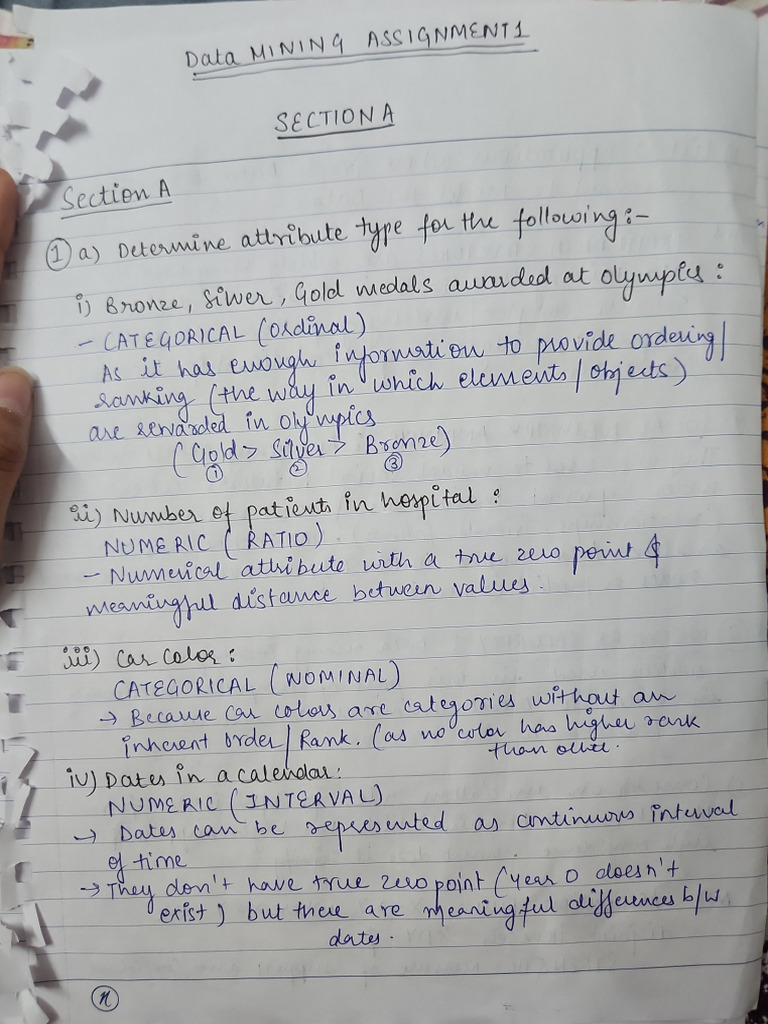 Data MINING ASSIGNMENT 1
SECTION A
Section A
① a) Determine attribute type for the following:-
i) Bronze, Silver, Gold medals awarded at olympics :
- CATEGORICAL (Ordinal)
As it has enough information to provide ordering/
ranking (the way in which elements/objects)
are rewarded in olympics
(Gold > Silver > Bronze)
① ② ③
ii) Number of patients in hospital :
NUMERIC (RATIO)
- Numerical attribute with a true zero point &
meaningful distance between values.
iii) Car color :
CATEGORICAL (NOMINAL)
→ Because car colors are categories without an
inherent order/Rank. (as no color has higher rank
than other.
iv) Dates in a calendar:
NUMERIC (INTERVAL)
→ Dates can be represented as continuous interval
of time
→ They don't have true zero point (year 0 doesn't
exist) but there are meaningful differences b/w
dates.